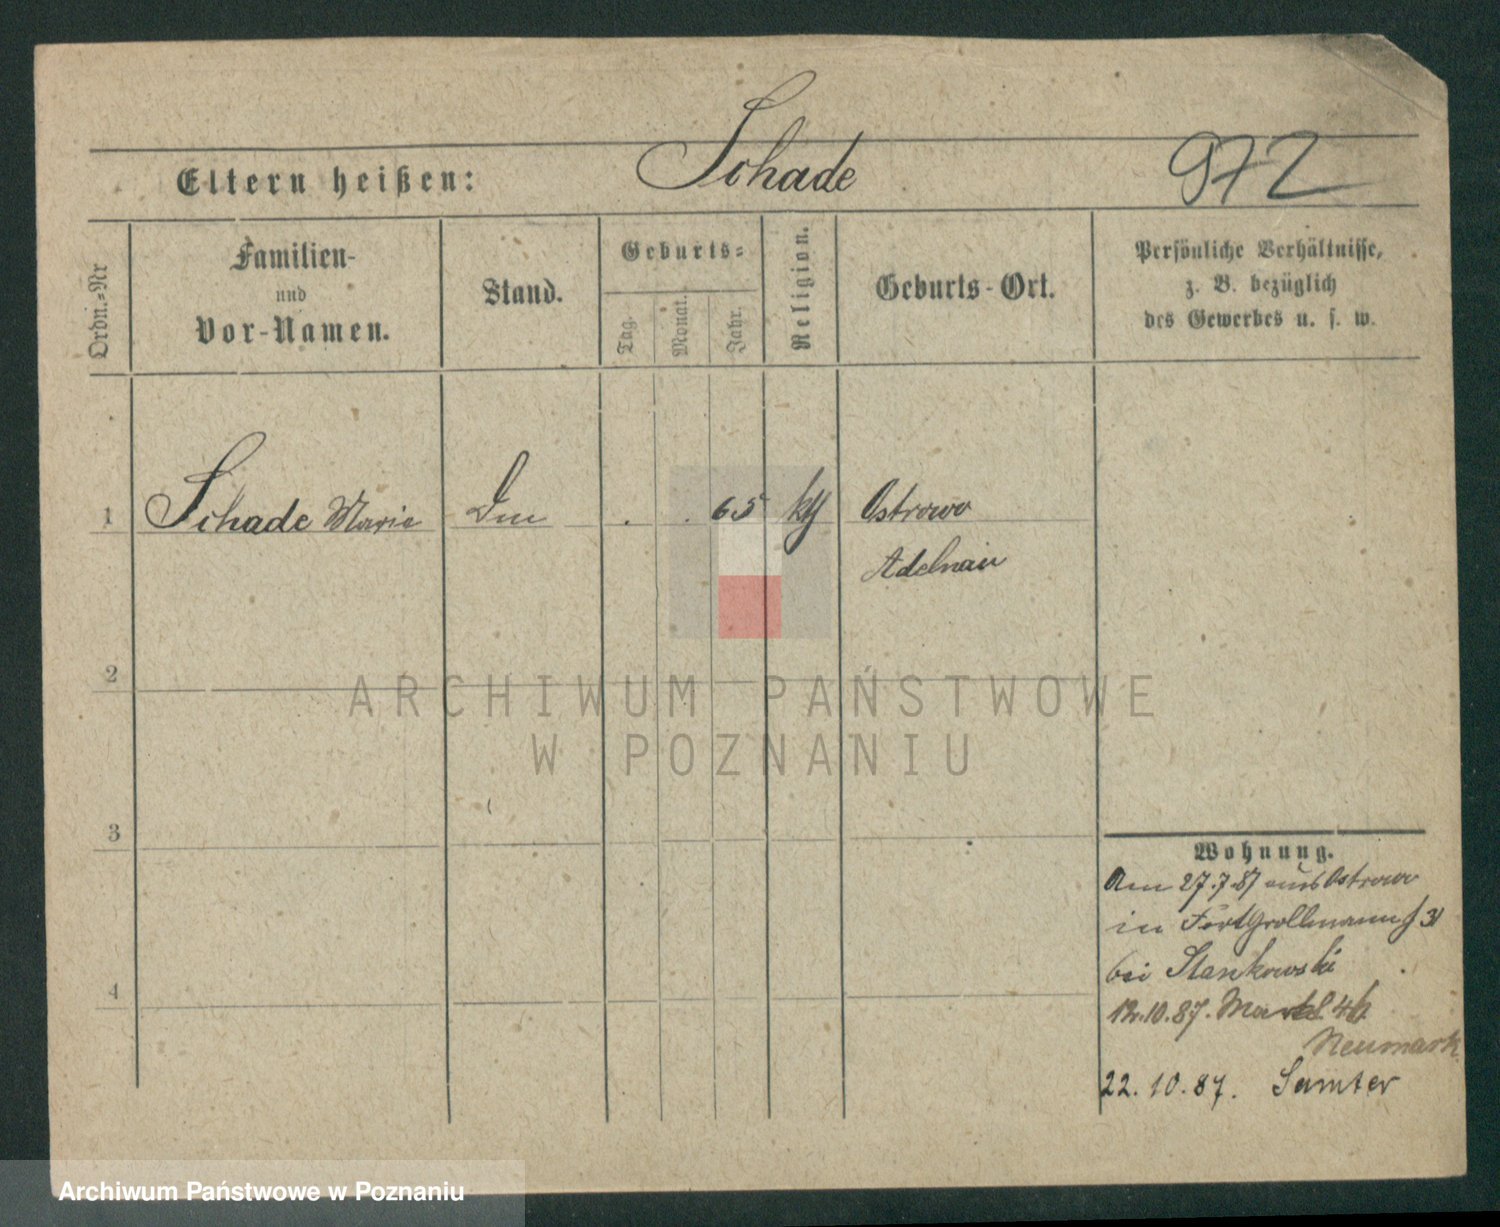 Schade
972
Eltern heißen:
Ordn.=Nr
Familien-
und
Vor-Namen.
Stand.
Geburts=
Tag.
Monat.
Jahr.
Religion.
Geburts-Ort.
Persönliche Verhältnisse,
z. B. bezüglich
des Gewerbes u. s. w.
1 Schade Marie 65 Ostrowo
Adelnau
2
3
4
Wohnung.
Am 27.7.87 aus Ostrowo
in Fort Grollmann
bei Stankowski
12.10.87.
Neumark
22.10.87. Samter
ARCHIWUM PAŃSTWOWE
W POZNANIU
Archiwum Państwowe w Poznaniu